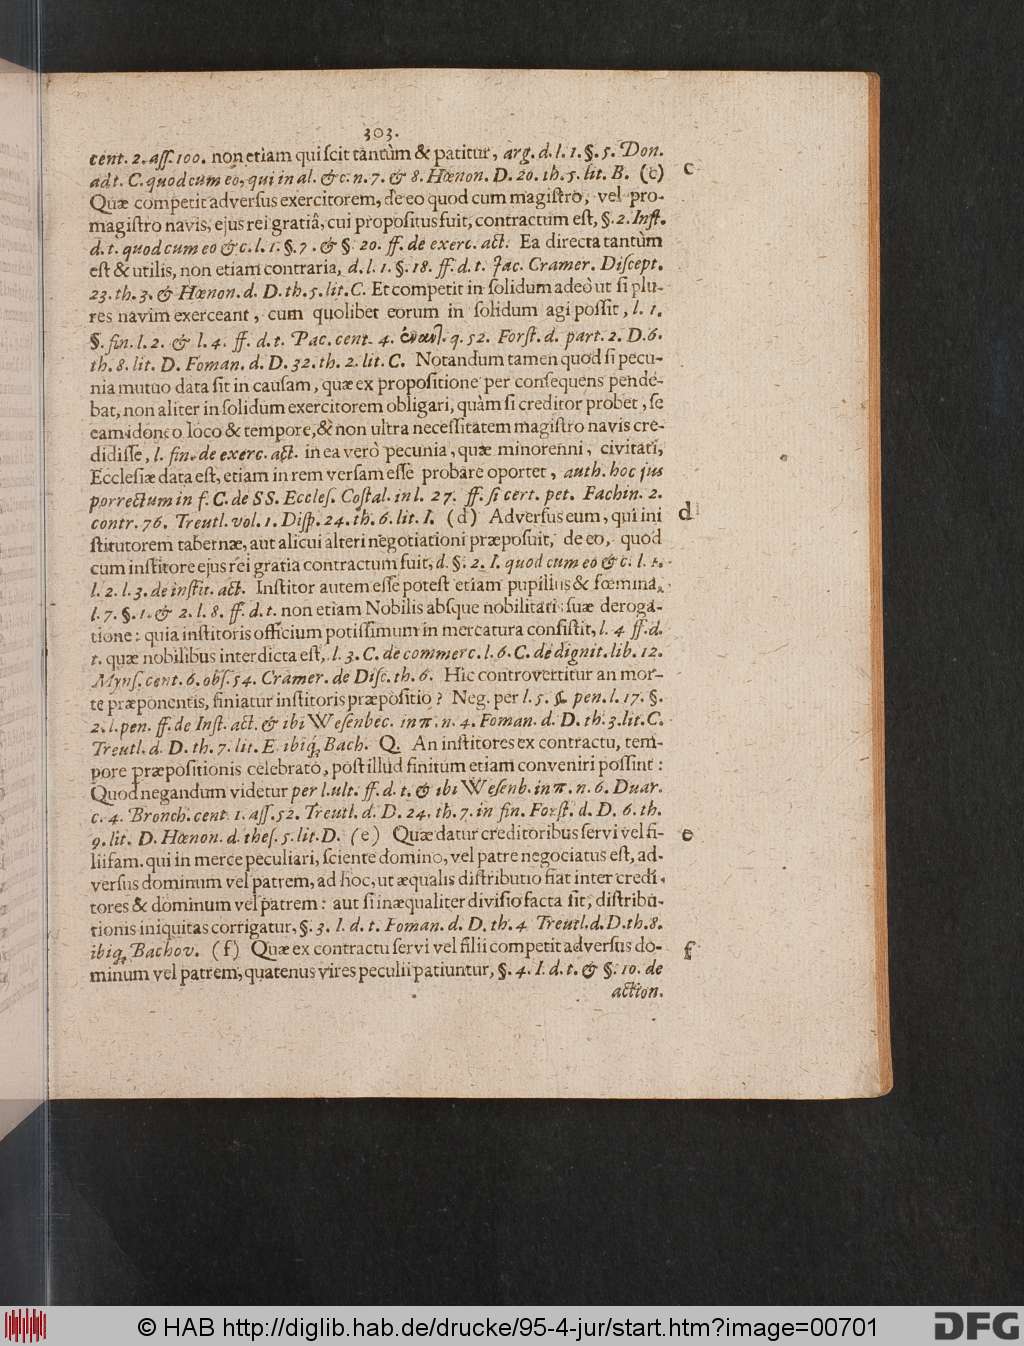 303.
cent. 2. aſſ. 100. non etiam qui ſcit tantùm & patitur, arg. d. l. 1. §. 5. Don.
adt. C. quod cum eo, qui in al. & c. n. 7. & 8. Hœnon. D. 20. th. 5. lit. B. (c)
c
Quæ competit adverſus exercitorem, de eo quod cum magiſtro, vel pro-
magiſtro navis, ejus rei gratiâ, cui propoſitus fuit, contractum eſt, §. 2. Inſt.
d. t. quod cum eo & c. l. 1. §. 7. & §. 20. ff. de exerc. act. Ea directa tantùm
eſt & utilis, non etiam contraria, d. l. 1. §. 18. ff. d. t. Jac. Cramer. Diſcept.
23. th. 3. & Hœnon. d. D. th. 5. lit. C. Et competit in ſolidum adeò ut ſi plu-
res navim exerceant, cum quolibet eorum in ſolidum agi poſſit, l. 1.
§. fin. l. 2. & l. 4. ff. d. t. Pac. cent. 4. q. 52. Forſt. d. part. 2. D. 6.
th. 8. lit. D. Foman. d. D. 32. th. 2. lit. C. Notandum tamen quòd ſi pecu-
nia mutuo data ſit in cauſam, quæ ex propoſitione per conſequens pende-
bat, non aliter in ſolidum exercitorem obligari, quàm ſi creditor probet, ſe
eam idoneo loco & tempore, & non ultra neceſſitatem magiſtro navis cre-
didiſſe, l. fin. de exerc. act. in ea verò pecunia, quæ minorenni, civitati,
Eccleſiæ data eſt, etiam in rem verſam eſſe probare oportet, auth. hoc jus
porrectum in f. C. de SS. Eccleſ. Coſtal. in l. 27. ff. ſi cert. pet. Fachin. 2.
contr. 76. Treutl. vol. 1. Diſp. 24. th. 6. lit. I. (d) Adverſus eum, qui inſ
d
ſtitutorem tabernæ, aut alicui alteri negotiationi præpoſuit, de eo, quod
cum inſtitore ejus rei gratia contractum fuit, d. §. 2. I. quod cum eo & c. l. 1.
l. 2. l. 3. de inſtit. act. Inſtitor autem eſſe poteſt etiam pupillus & fœmina,
l. 7. §. 1. & 2. l. 8. ff. d. t. non etiam Nobilis absque nobilitatis ſuæ deroga-
tione: quia inſtitoris officium potiſſimum in mercatura conſiſtit, l. 4 ff. d.
t. quæ nobilibus interdicta eſt, l. 3. C. de commerc. l. 6. C. de dignit. lib. 12.
Mynſ. cent. 6. obſ. 54. Cramer. de Diſc. th. 6. Hic controvertitur an mor-
te præponentis, finiatur inſtitoris præpoſitio? Neg. per l. 5. §. pen. l. 17. §.
2. l. pen. ff. de Inſt. act. & ibi Weſenbec. in π. n. 4. Foman. d. D. th. 3. lit. C.
Treutl. d. D. th. 7. lit. E. ibiq; Bach. Q. An inſtitores ex contractu, tem-
pore præpoſitionis celebrato, poſt illud finitum etiam conveniri poſſint:
Quod negandum videtur per l. ult. ff. d. t. & ibi Weſenb. in π. n. 6. Duar.
c. 4. Bronch. cent. 1. aſſ. 52. Treutl. d. D. 24. th. 7. in fin. Forſt. d. D. 6. th.
9. lit. D. Hœnon. d. theſ. 5. lit. D. (e) Quæ datur creditoribus ſervi vel fi-
e
liifam. qui in merce peculiari, ſciente domino, vel patre negociatus eſt, ad-
verſus dominum vel patrem, ad hoc, ut æqualis diſtributio fiat inter credi-
tores & dominum vel patrem: aut ſi inæqualiter diviſio facta ſit, diſtribu-
tionis iniquitas corrigatur, §. 3. I. d. t. Foman. d. D. th. 4. Treutl. d. D. th. 8.
ibiq; Bachov. (f) Quæ ex contractu ſervi vel filii competit adverſus do-
f
minum vel patrem, quatenus vires peculii patiuntur, §. 4. I. d. t. & §. 10. de
action.
© HAB http://diglib.hab.de/drucke/95-4-jur/start.htm?image=00701
DFG